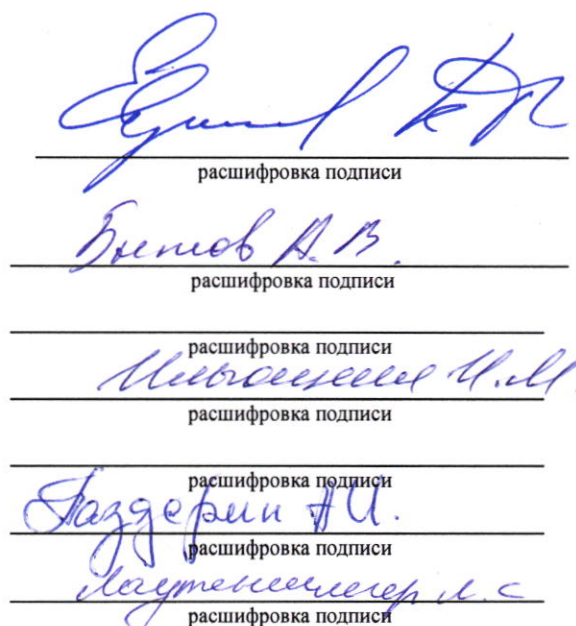 расшифровка подписи
Бытов А.В.
расшифровка подписи
расшифровка подписи
И.М.
расшифровка подписи
расшифровка подписи
Паздерин А.И.
расшифровка подписи
Л.С
расшифровка подписи